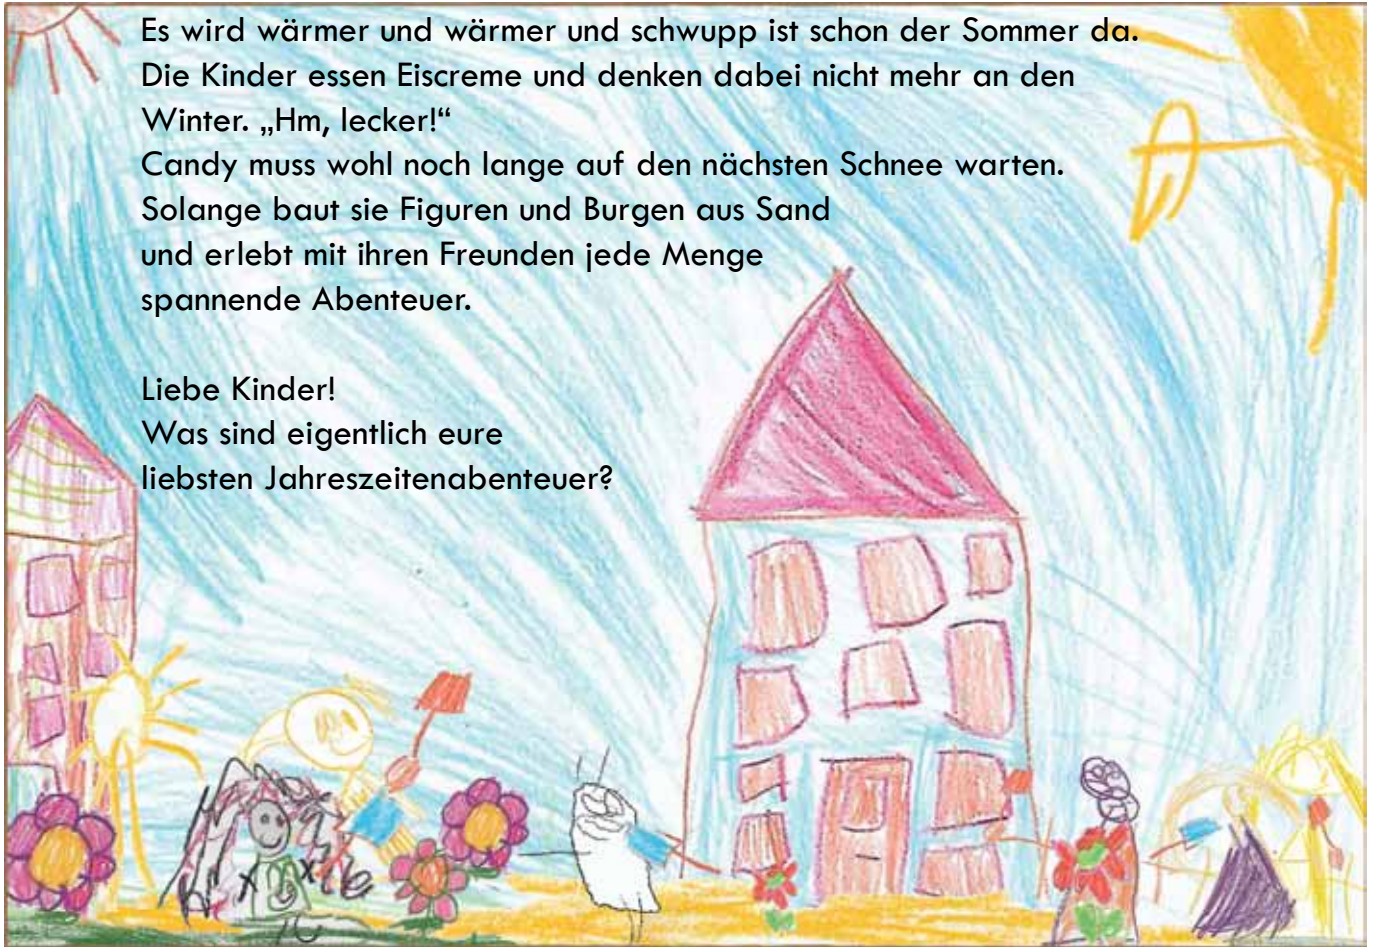 Es wird wärmer und wärmer und schwupp ist schon der Sommer da.
Die Kinder essen Eiscreme und denken dabei nicht mehr an den
Winter. „Hm, lecker!“
Candy muss wohl noch lange auf den nächsten Schnee warten.
Solange baut sie Figuren und Burgen aus Sand
und erlebt mit ihren Freunden jede Menge
spannende Abenteuer.
Liebe Kinder!
Was sind eigentlich eure
liebsten Jahreszeitenabenteuer?